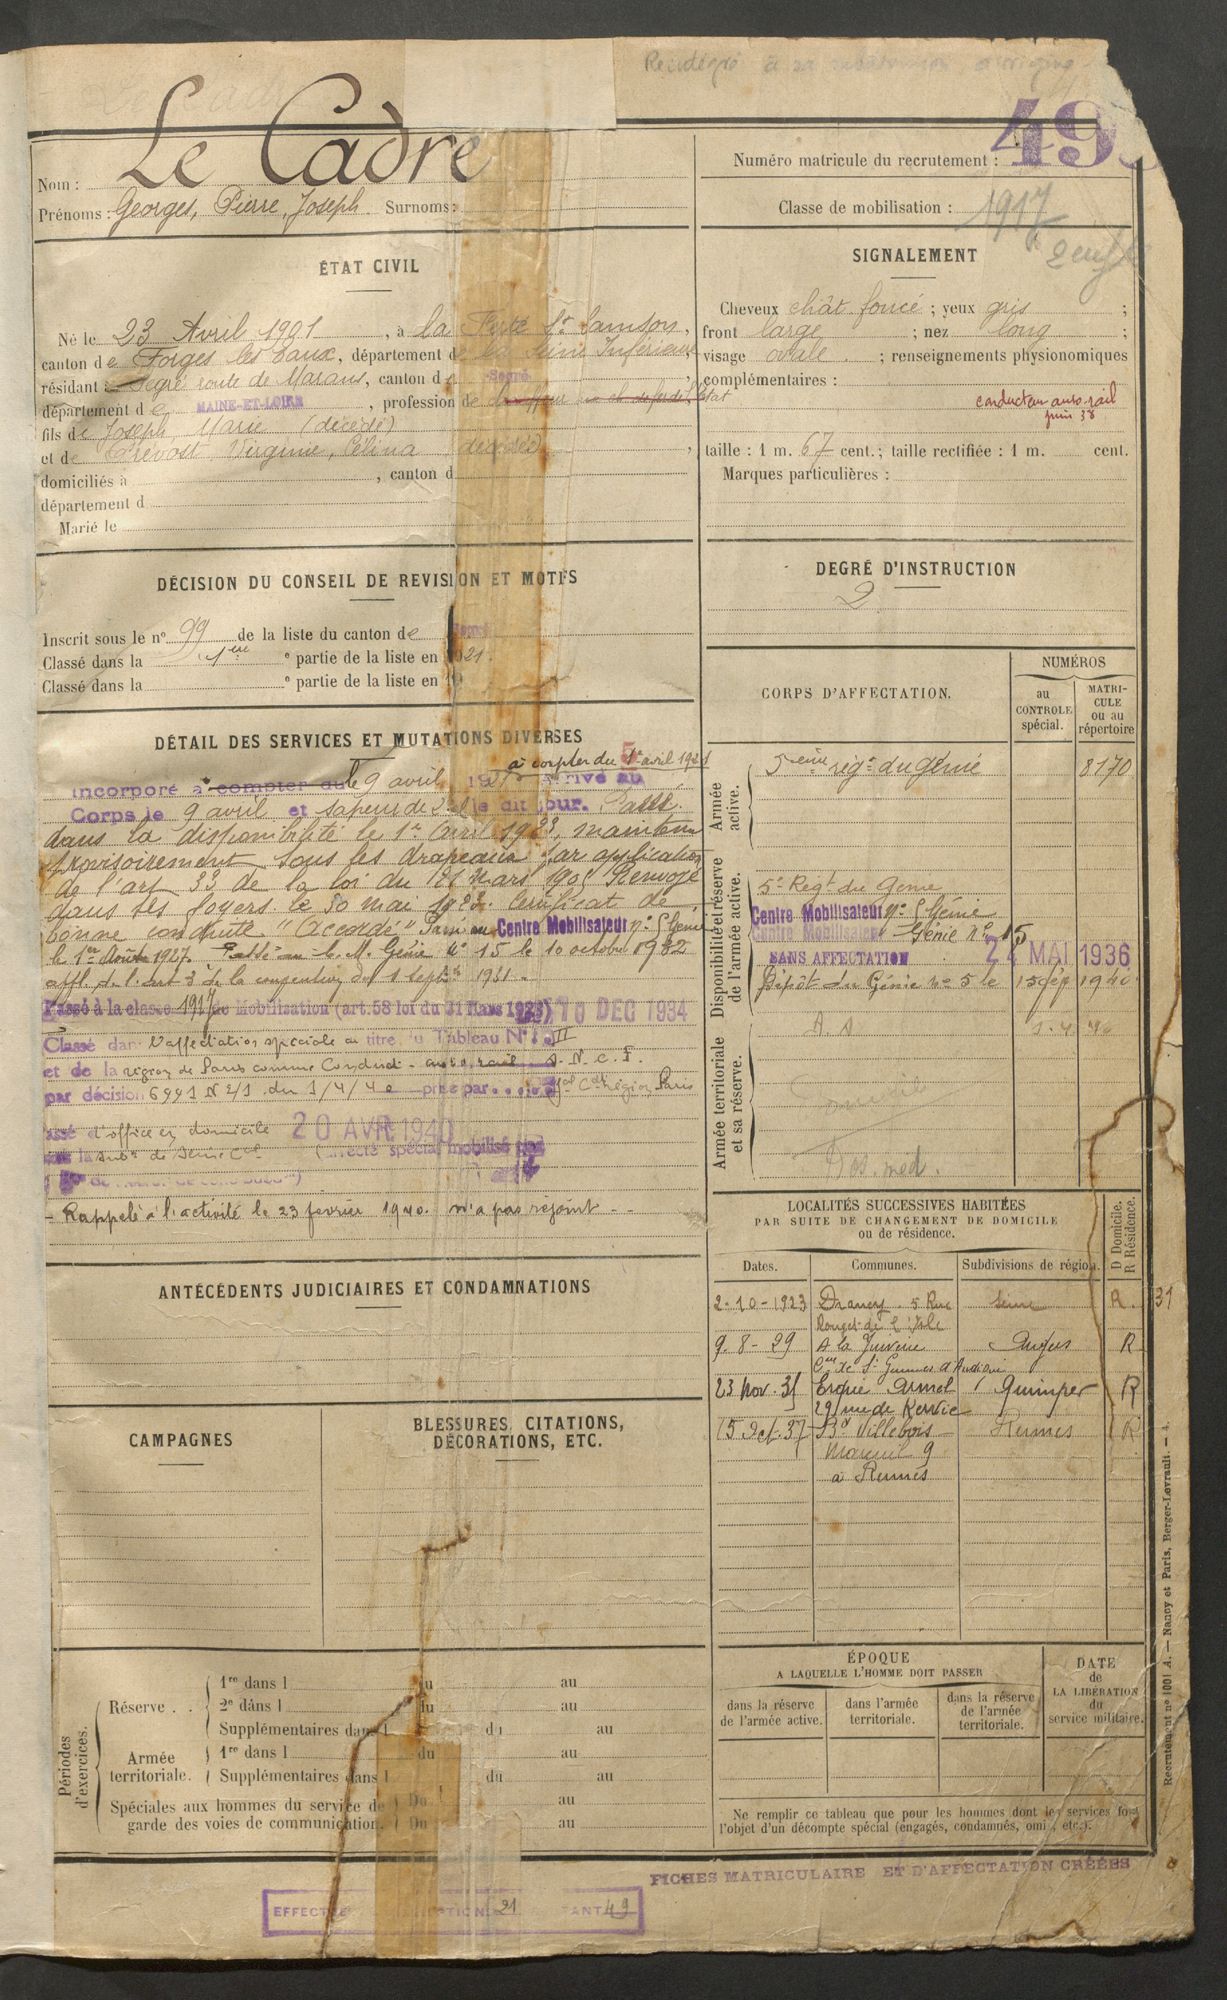 Numéro matricule du recrutement : 49
Nom : Le Cadre
Prénoms : Georges, Pierre, Joseph. Surnoms :
Classe de mobilisation : 1917
2 enfts
ÉTAT CIVIL
Né le 23 Avril 1901, à la Ferté St Samson,
canton de Forges les Eaux, département de la Seine Inférieure
résidant à Segré route de Marans, canton de Segré
département de MAINE-ET-LOIRE, profession de
fils de Joseph, Marie (décédé)
et de Prévost, Virginie, Célina (décédée)
domiciliés à , canton d
département d
Marié le
SIGNALEMENT
Cheveux chât foncé ; yeux gris ;
front large ; nez long ;
visage ovale ; renseignements physionomiques
complémentaires :
conducteur auto-rail
juin 38
taille : 1 m. 67 cent. ; taille rectifiée : 1 m. cent.
Marques particulières :
DÉCISION DU CONSEIL DE REVISION ET MOTIFS
Inscrit sous le nº 99 de la liste du canton de Segré
Classé dans la 1ère e partie de la liste en 1921.
Classé dans la e partie de la liste en 19
DEGRÉ D'INSTRUCTION
2
DÉTAIL DES SERVICES ET MUTATIONS DIVERSES
à compter du 1er avril 1921
Incorporé à compter du le 9 avril 1921 arrivé au
Corps le 9 avril et sapeur de 2e cl le dit jour. Passé
dans la disponibilité le 1er Avril 1923, maintenu
provisoirement sous les drapeaux par application
de l'art 33 de la loi du 21 mars 1905 Renvoyé
dans ses foyers le 30 mai 1923. Certificat de
bonne conduite "Accordé" Passé au Centre Mobilisateur nº 5 Génie
le 1er 1927. Passé au C. M. Génie Nº 15 le 10 octobre 1932
appl. de l'art 3 de la
Passé à la classe 1917 de Mobilisation (art. 58 loi du 31 Mars 1928) 10 DEC 1934
Classé dans l'affectation spéciale au titre du Tableau Nº III
et de la région de Paris comme Conduct. auto rail S. N. C. F.
par décision 6991 N 2/1 du 1/4/40 prise par Gal Cdt région Paris
Passé d'office en domicile 20 AVR 1940
dans la Subn de Seine Cle (affecté spécial mobilisé
- Rappelé à l'activité le 23 février 1940. n'a pas rejoint - -
CORPS D'AFFECTATION.
NUMÉROS
au CONTROLE spécial.
MATRICULE ou au répertoire
Armée active.
5ème régt du Génie 8170
Disponibilité et réserve de l'armée active.
5e Régt du Génie
Centre Mobilisateur nº 5 Génie
Centre Mobilisateur Génie nº 15
SANS AFFECTATION 22 MAI 1936
Dépôt du Génie nº 5 le 15 1940
A. S 1. 4 40
Armée territoriale et sa réserve.
Dos. med.
LOCALITÉS SUCCESSIVES HABITÉES
PAR SUITE DE CHANGEMENT DE DOMICILE
ou de résidence.
D Domicile.
R Résidence.
Dates. Communes. Subdivisions de région.
2-10-1923 Drancy. 5 Rue Seine R. 31
Rouget de l'Isle
9. 8 - 29 A la Angers R
Cne de St Gemmes d'Andigné
23 Nov. 35 Quimper R
29 rue de Kervic
15 Oct. 37 Bd Villebois Rennes R
Mareuil 9
à Rennes
ANTÉCÉDENTS JUDICIAIRES ET CONDAMNATIONS
CAMPAGNES
BLESSURES, CITATIONS,
DÉCORATIONS, ETC.
Périodes d'exercices.
Réserve . .
1re dans l du au
2e dans l du au
Supplémentaires dans l du au
Armée territoriale.
1re dans l du au
Supplémentaires dans l du au
Spéciales aux hommes du service de Du au
garde des voies de communication. Du au
ÉPOQUE
A LAQUELLE L'HOMME DOIT PASSER
dans la réserve de l'armée active.
dans l'armée territoriale.
dans la réserve de l'armée territoriale.
DATE
de
LA LIBÉRATION
du
service militaire.
Ne remplir ce tableau que pour les hommes dont les services font
l'objet d'un décompte spécial (engagés, condamnés, omis, etc.).
Recrutement nº 1001 A. — Nancy et Paris, Berger-Levrault. — 4.
FICHES MATRICULAIRE ET D'AFFECTATION CRÉÉES
21 49